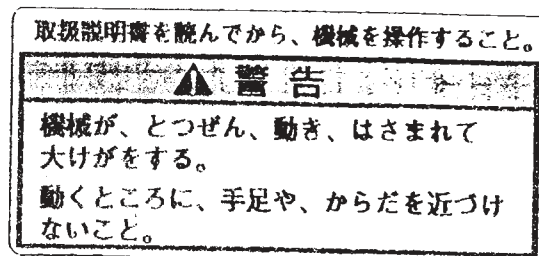 取扱説明書を読んでから、機械を操作すること。
警告
機械が、とつぜん、動き、はさまれて
大けがをする。
動くところに、手足や、からだを近づけ
ないこと。